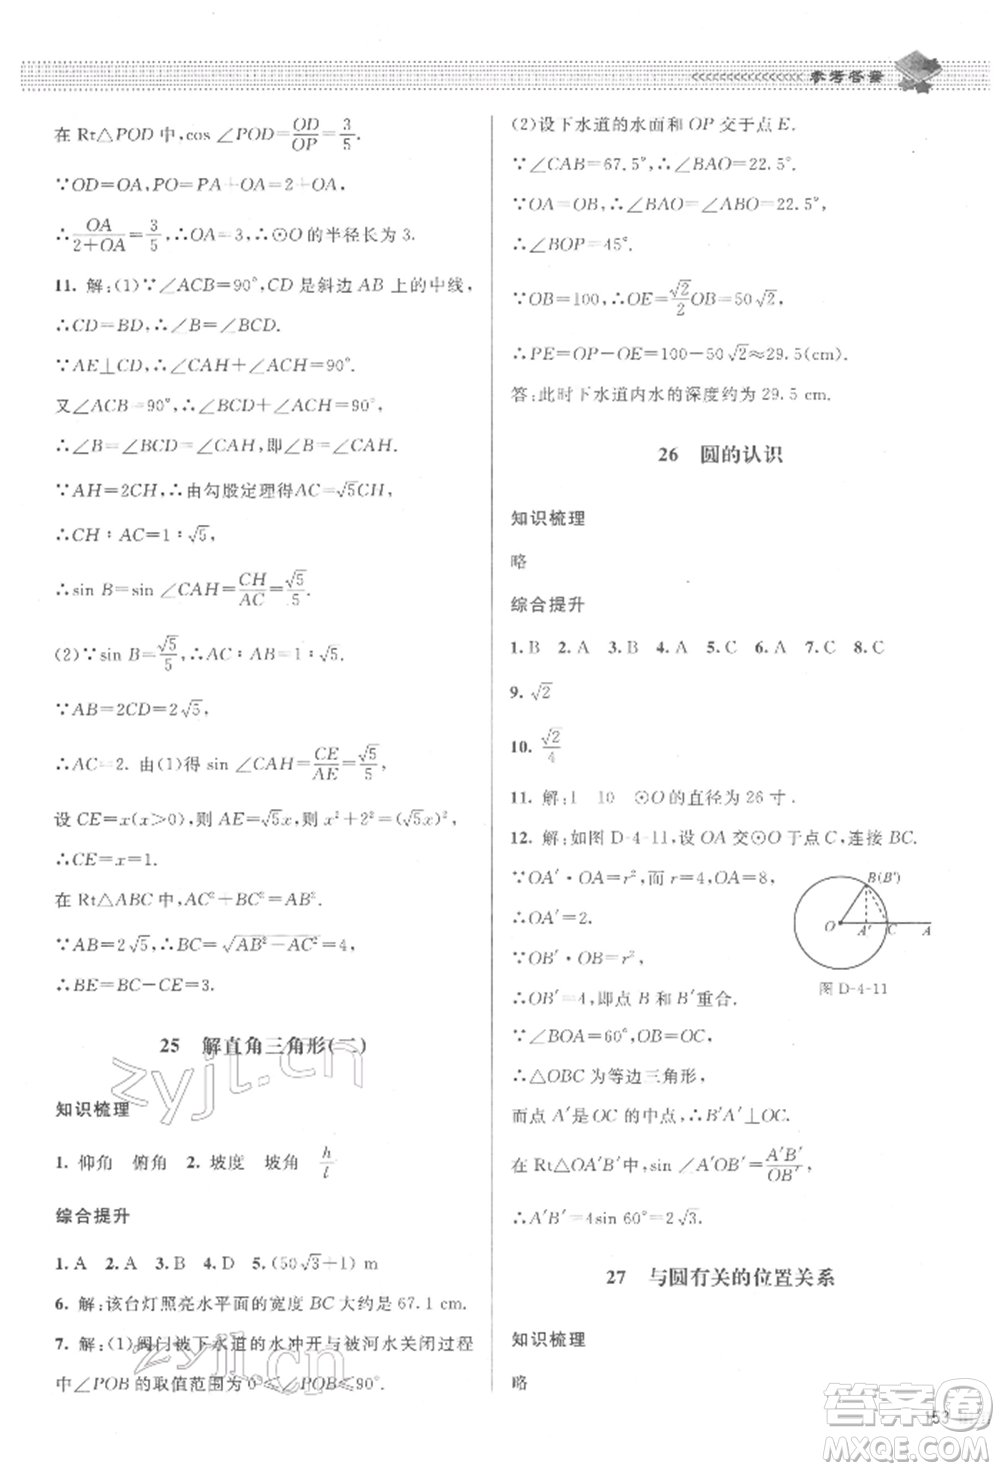 参考答案
在 Rt△POD 中,cos ∠POD=OD/OP=3/5.
∵OD=OA,PO=PA+OA=2+OA,
∴OA/(2+OA)=3/5,∴OA=3,∴⊙O 的半径长为 3.
11. 解:(1)∵∠ACB=90°,CD 是斜边 AB 上的中线,
∴CD=BD,∴∠B=∠BCD.
∵AE⊥CD,∴∠CAH+∠ACH=90°.
又∠ACB=90°,∴∠BCD+∠ACH=90°,
∴∠B=∠BCD=∠CAH,即∠B=∠CAH.
∵AH=2CH,∴由勾股定理得AC=√5CH,
∴CH∶AC=1∶√5,
∴sin B=sin ∠CAH=CH/AC=√5/5.
(2)∵sin B=√5/5,∴AC∶AB=1∶√5.
∵AB=2CD=2√5,
∴AC=2. 由(1)得 sin ∠CAH=CE/AE=√5/5,
设 CE=x(x>0),则 AE=√5x,则 x²+2²=(√5x)²,
∴CE=x=1.
在 Rt△ABC 中,AC²+BC²=AB².
∵AB=2√5,∴BC=√(AB²-AC²)=4,
∴BE=BC-CE=3.
25 解直角三角形(二)
知识梳理
1. 仰角 俯角 2. 坡度 坡角 h/l
综合提升
1. A 2. A 3. B 4. D 5. (50√3+1) m
6. 解:该台灯照亮水平面的宽度 BC 大约是 67.1 cm.
7. 解:(1)阀门被下水道的水冲开与被河水关闭过程
中∠POB 的取值范围为 0≤∠POB≤90°.
(2)设下水道的水面和 OP 交于点 E.
∵∠CAB=67.5°,∴∠BAO=22.5°,
∵OA=OB,∴∠BAO=∠ABO=22.5°,
∴∠BOP=45°.
∵OB=100,∴OE=√2/2OB=50√2,
∴PE=OP-OE=100-50√2≈29.5(cm).
答:此时下水道内水的深度约为 29.5 cm.
26 圆的认识
知识梳理
略
综合提升
1. B 2. A 3. B 4. A 5. C 6. A 7. C 8. C
9. √2
10. √2/4
11. 解:1 10 ⊙O 的直径为 26 寸.
12. 解:如图 D-4-11,设 OA 交⊙O 于点 C,连接 BC.
∵OA′·OA=r²,而 r=4,OA=8,
∴OA′=2.
∵OB′·OB=r²,
∴OB′=4,即点 B 和 B′重合.
∵∠BOA=60°,OB=OC,
∴△OBC 为等边三角形,
而点 A′是 OC 的中点,∴B′A′⊥OC.
在 Rt△OA′B′中,sin ∠A′OB′=A′B′/OB′,
∴A′B′=4sin 60°=2√3.
B(B′)
O A′ C A
图 D-4-11
27 与圆有关的位置关系
知识梳理
略
153
zyjl.cn
zyjl.cn
答案圈
MXQE.COM